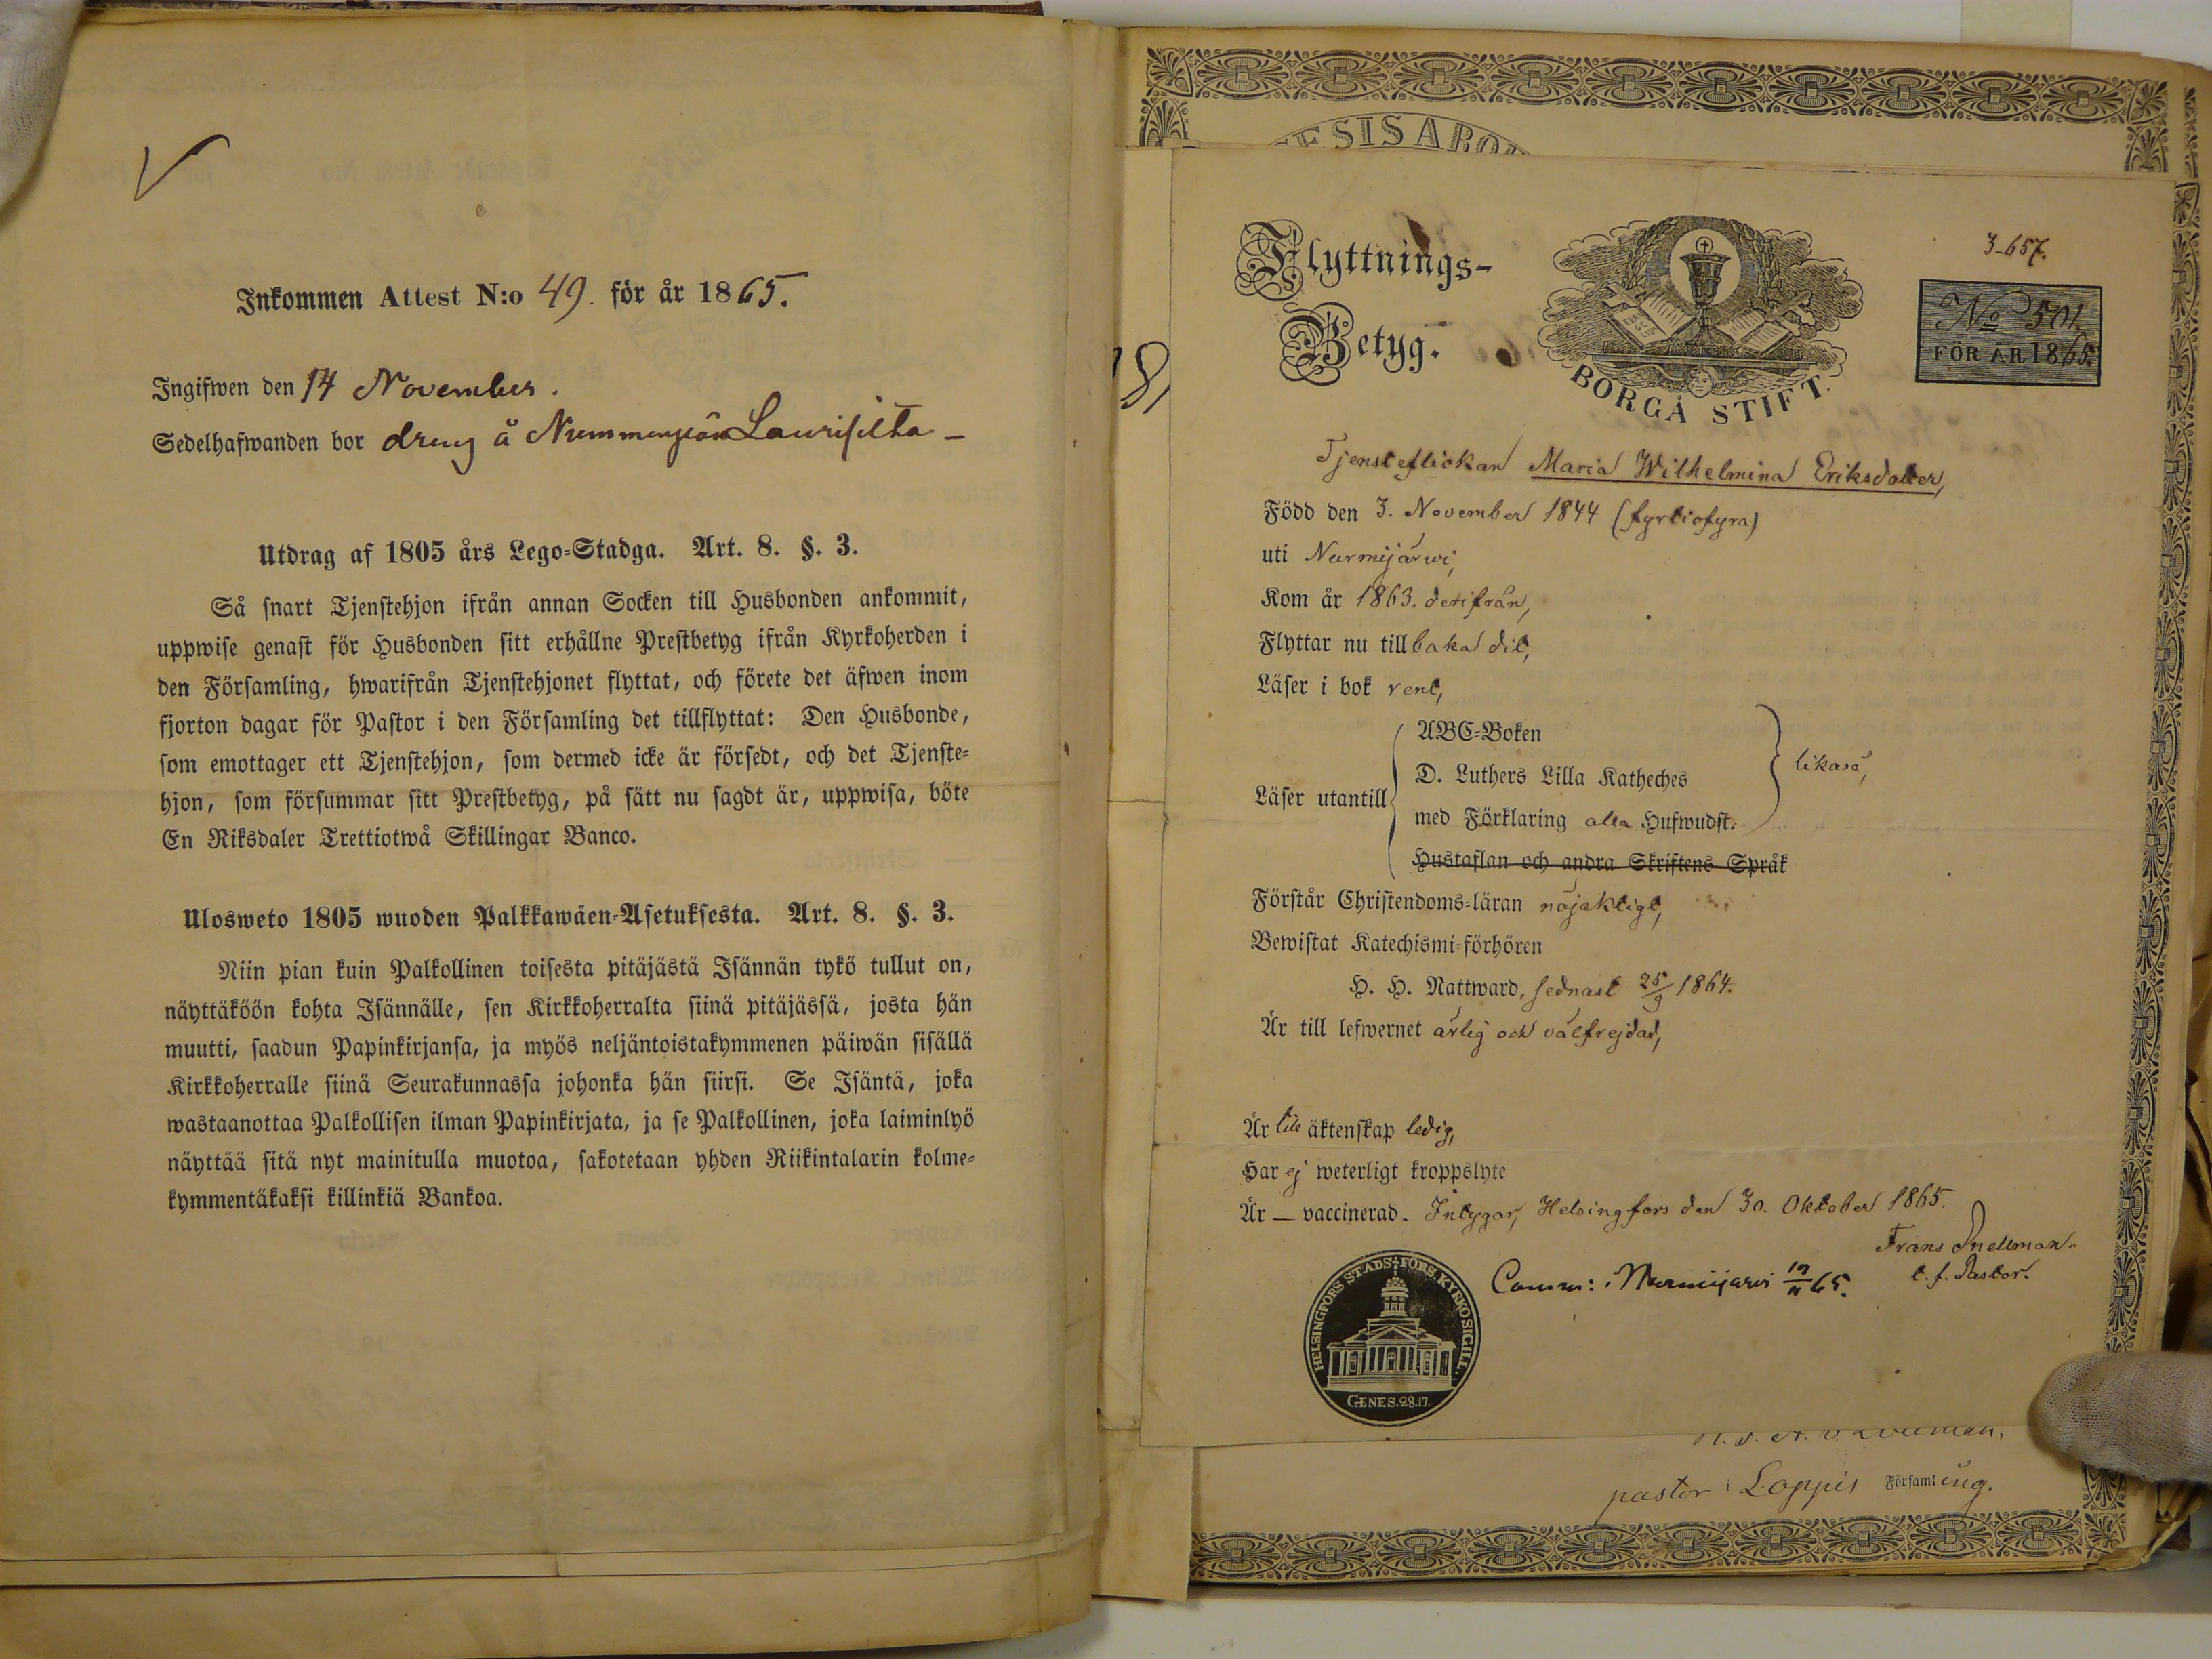 Inkommen Attest N:o 49. för år 1865.
Ingifwen den 14 November.
Sedelhafwanden bor dreng å Laurisilta –
Utdrag af 1805 års Lego=Stadga. Art. 8. §. 3.
Så snart Tjenstehjon ifrån annan Socken till Husbonden ankommit,
uppwise genast för Husbonden sitt erhållne Prestbetyg ifrån Kyrkoherden i
den Församling, hwarifrån Tjenstehjonet flyttat, och förete det äfwen inom
fjorton dagar för Pastor i den Församling det tillflyttat: Den Husbonde,
som emottager ett Tjenstehjon, som dermed icke är försedt, och det Tjenste=
hjon, som försummar sitt Prestbetyg, på sätt nu sagdt är, uppwisa, böte
En Riksdaler Trettiotwå Skillingar Banco.
Ulosweto 1805 wuoden Palkkawäen=Asetuksesta. Art. 8. §. 3.
Niin pian kuin Palkollinen toisesta pitäjästä Isännän tykö tullut on,
näyttäköön kohta Isännälle, sen Kirkkoherralta siinä pitäjässä, josta hän
muutti, saadun Papinkirjansa, ja myös neljäntoistakymmenen päiwän sisällä
Kirkkoherralle siinä Seurakunnassa johonka hän siirsi. Se Isäntä, joka
wastaanottaa Palkollisen ilman Papinkirjata, ja se Palkollinen, joka laiminlyö
näyttää sitä nyt mainitulla muotoa, sakotetaan yhden Riikintalarin kolme=
kymmentäkaksi killinkiä Bankoa.
SIS ABO
Flyttnings-
Betyg.
BORGÅ STIFT.
3-657.
No 501.
FÖR ÅR 1865.
Tjensteflickan Maria Wilhelmina Eriksdotter,
Född den 3. November 1844 (fyrtiofyra)
uti Nurmijärwi,
Kom år 1863. derifrån,
Flyttar nu till baka dit,
Läser i bok rent,
Läser utantill
ABC=Boken
D. Luthers Lilla Katheches
med Förklaring alla Hufwudst.
Hustaflan och andra Skriftens Språk
likaså,
Förstår Christendoms=läran nöjaktigt,
Bewistat Katechismi=förhören
H. H. Nattward, sednast 25/9 1864.
Är till lefwernet ärlig och välfrejdad,
Är till äktenskap ledig,
Har ej weterligt kroppslyte
Är — vaccinerad. Intygar, Helsingfors den 30. Oktober 1865.
Frans Snellman.
t. f. Pastor.
Comm: i Nurmijärvi 65.
HELSINGFORS STADS FÖRS. KYRKOSIGILL.
GENES. 28.17.
pastor i Loppis Församling.